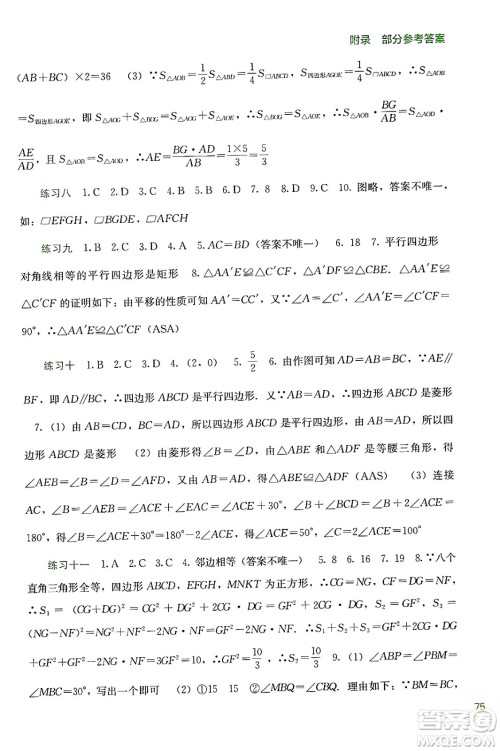 附录　部分参考答案
(AB+BC)×2=36　(3) ∵S△AOB=1/2 S△ABD=1/4 S□ABCD，S四边形AOGE=1/4 S□ABCD，
∴S△AOB=S四边形AOGE，即 S△AOG+S△BOG=S△AOG+S△AGE，∴S△BOG=S△AGE，∴BG/AE=
AE/AD，且 S△AOB=S△ACD=BG·AD/AB=1×5/3=5/3
练习八　1.C　2.D　3.C　4.D　5.D　6.D　7.B　8.C　9.C　10.图略，答案不唯一，
例：□EFGH，□BGDE，□AFCH
练习九　1.B　2.C　3.A　4.D　5.AC=BD(答案不唯一)　6.18　7.平行四边形
对角线相等的平行四边形是矩形　8.△CC′F≌△AA′E，△A′DF≌△CBE，△AA′E≌
△C′CF 的证明如下：由平移的性质可知 AA′=CC′.又∵∠A=∠C′，∠AA′E=∠C′CF=
90°，∴△AA′E≌△C′CF(ASA)
练习十　1.B　2.D　3.A　4.(2，0)　5.5/2　6.由作图可知 AD=AB=BC，∵AE∥
BF，即 AD∥BC，∴四边形 ABCD 是平行四边形．又∵AD=AB，∴四边形 ABCD 是菱形
7.(1)由题意得 AB=CD，BC=AD，所以四边形 ABCD 是平行四边形．又∵AB=BC，所以四
边形 ABCD 是菱形　(2)由菱形得 AB=BC=AD，由△AEF 为等腰三角形，得∠AEF=
∠AFE，∠AEB=∠AFD=∠B=∠D，所以△ABE≌△ADF(AAS)　(3)连接
AC，则∠ACE=∠ACF，由∠AEF+∠ACE=90°，∠AEF=∠AEB=∠B，得∠B+
∠ACE=90°．又∠B+2∠ACE=180°−∠B，∴2∠B+2∠ACE=180°，∠B+∠ACE=90°
练习十一　1.A　2.D　3.C　4.邻边相等(答案不唯一)　5.8　6.16　7.19　8.∵八个
直角三角形全等，四边形 ABCD，EFGH，MNKT 为正方形，∴CG=NG，CF=DG=NF，
∴S₁=(CG+DG)²=CG²+DG²+2CG·DG=GF²+2CG·DG，S₂=GF²，S₃=
(NG−NF)²=NG²+NF²−2NG·NF.∵S₁+S₂+S₃=GF²+2CG·DG+GF²+NG²+
NF²−2NG·NF=3GF²=10，∴GF²=10/3，∴S₂=10/3　9.(1)∠ABP=∠PBM=
∠MBC=30°，写出一个即可　(2)①15　15　②∠MBQ=∠CBQ，∵四边形 ABCD
75